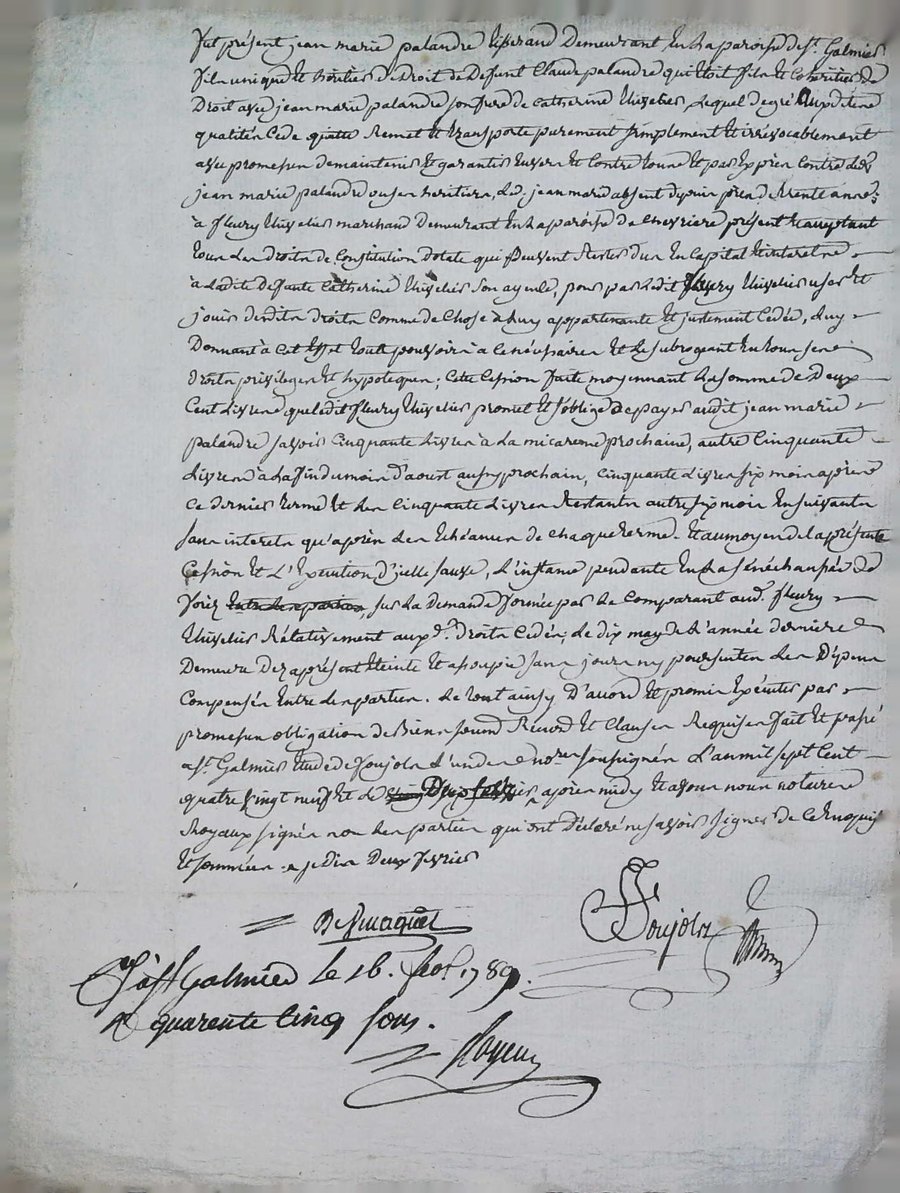 fut présent jean marie palandre tisserand Demeurant en la paroisse de st. Galmier
fils unique et héritier de droit de Defunt Claude palandre qui étoit fils et cohéritier de
Droit avec jean marie palandre son frere de Catherine thivelier, Lequel de gré
qualitén Cede quitte Remet et transporte purement simplement et irrevocablement
avec promessen de maintenir et garantir Envern et Contre tous et par Exprèn Contre led.
jean marie palandre ou sen heritiern, led. jean marie absent depuin prèn de trente anné
à fleury thivelier marchand Demeurant en la paroisse de chevriere présent et acceptant
toun len droitn de Constitution dotale qui Peuvent Rester dus En Capital et interetn
à ladite défunte Catherine thivelier son ayeule, pour par Ledit fleury thivelier user et
jouir desditn droitn Comme de Chose à luy appartenante et justement Cedée, luy
Donnant à Cet Effet toutte pouvoirn à ce nécessairen et Le subrogeant En toun sen
droitn privilegen et hypotequen; Cette Cession faite moyennant La somme de Deux
Cent Livren que ledit fleury thivelier promet et s'oblige de payer audit jean marie
palandre savoir Cinquante Livren à La micareme prochaine, autre Cinquante
Livren à La fin du moin d'aoust aussy prochain, Cinquante Livren six moin aprèn
Ce dernier terme et Len Cinquante Livren Restantn autre six moin Ensuivantn
sann interetn qu'aprèn Len Echéancen de chaque terme. Et au moyen de la présente
Cession et L'Execution d'icelle sauve, L'instance pendante En La sénéchaussée de
forez entre Len partien, sur La Demande formée par Le Comparant aud. fleury
thivelier Rélativement auxd. droitn Cedén, le dix may de L'année derniere
Demeure Dez aprésent éteinte et assoupie sann pouvoir ny poursuiten Len Dépenn
Compensén Entre Len partien. Le tout ainsy D'accord et promin Exécuter par
promessen obligation de Bienn soumn Renonn et Clausen Requisen fait et passé
a st. Galmier Etude de Soujola L'un den norer soussignén L'an mil sept Cent
quatre vingt neuf et Le Deux février aprèn midy et avonn noun notairen
Royaux signén non Len partien qui ont Déclaré ne savoir signer de Ce Enquin
et sommeen. je din Deux fevrier
Soujola
à st Galmier le 16. fevr 1789.
R quarente Cinq sous.